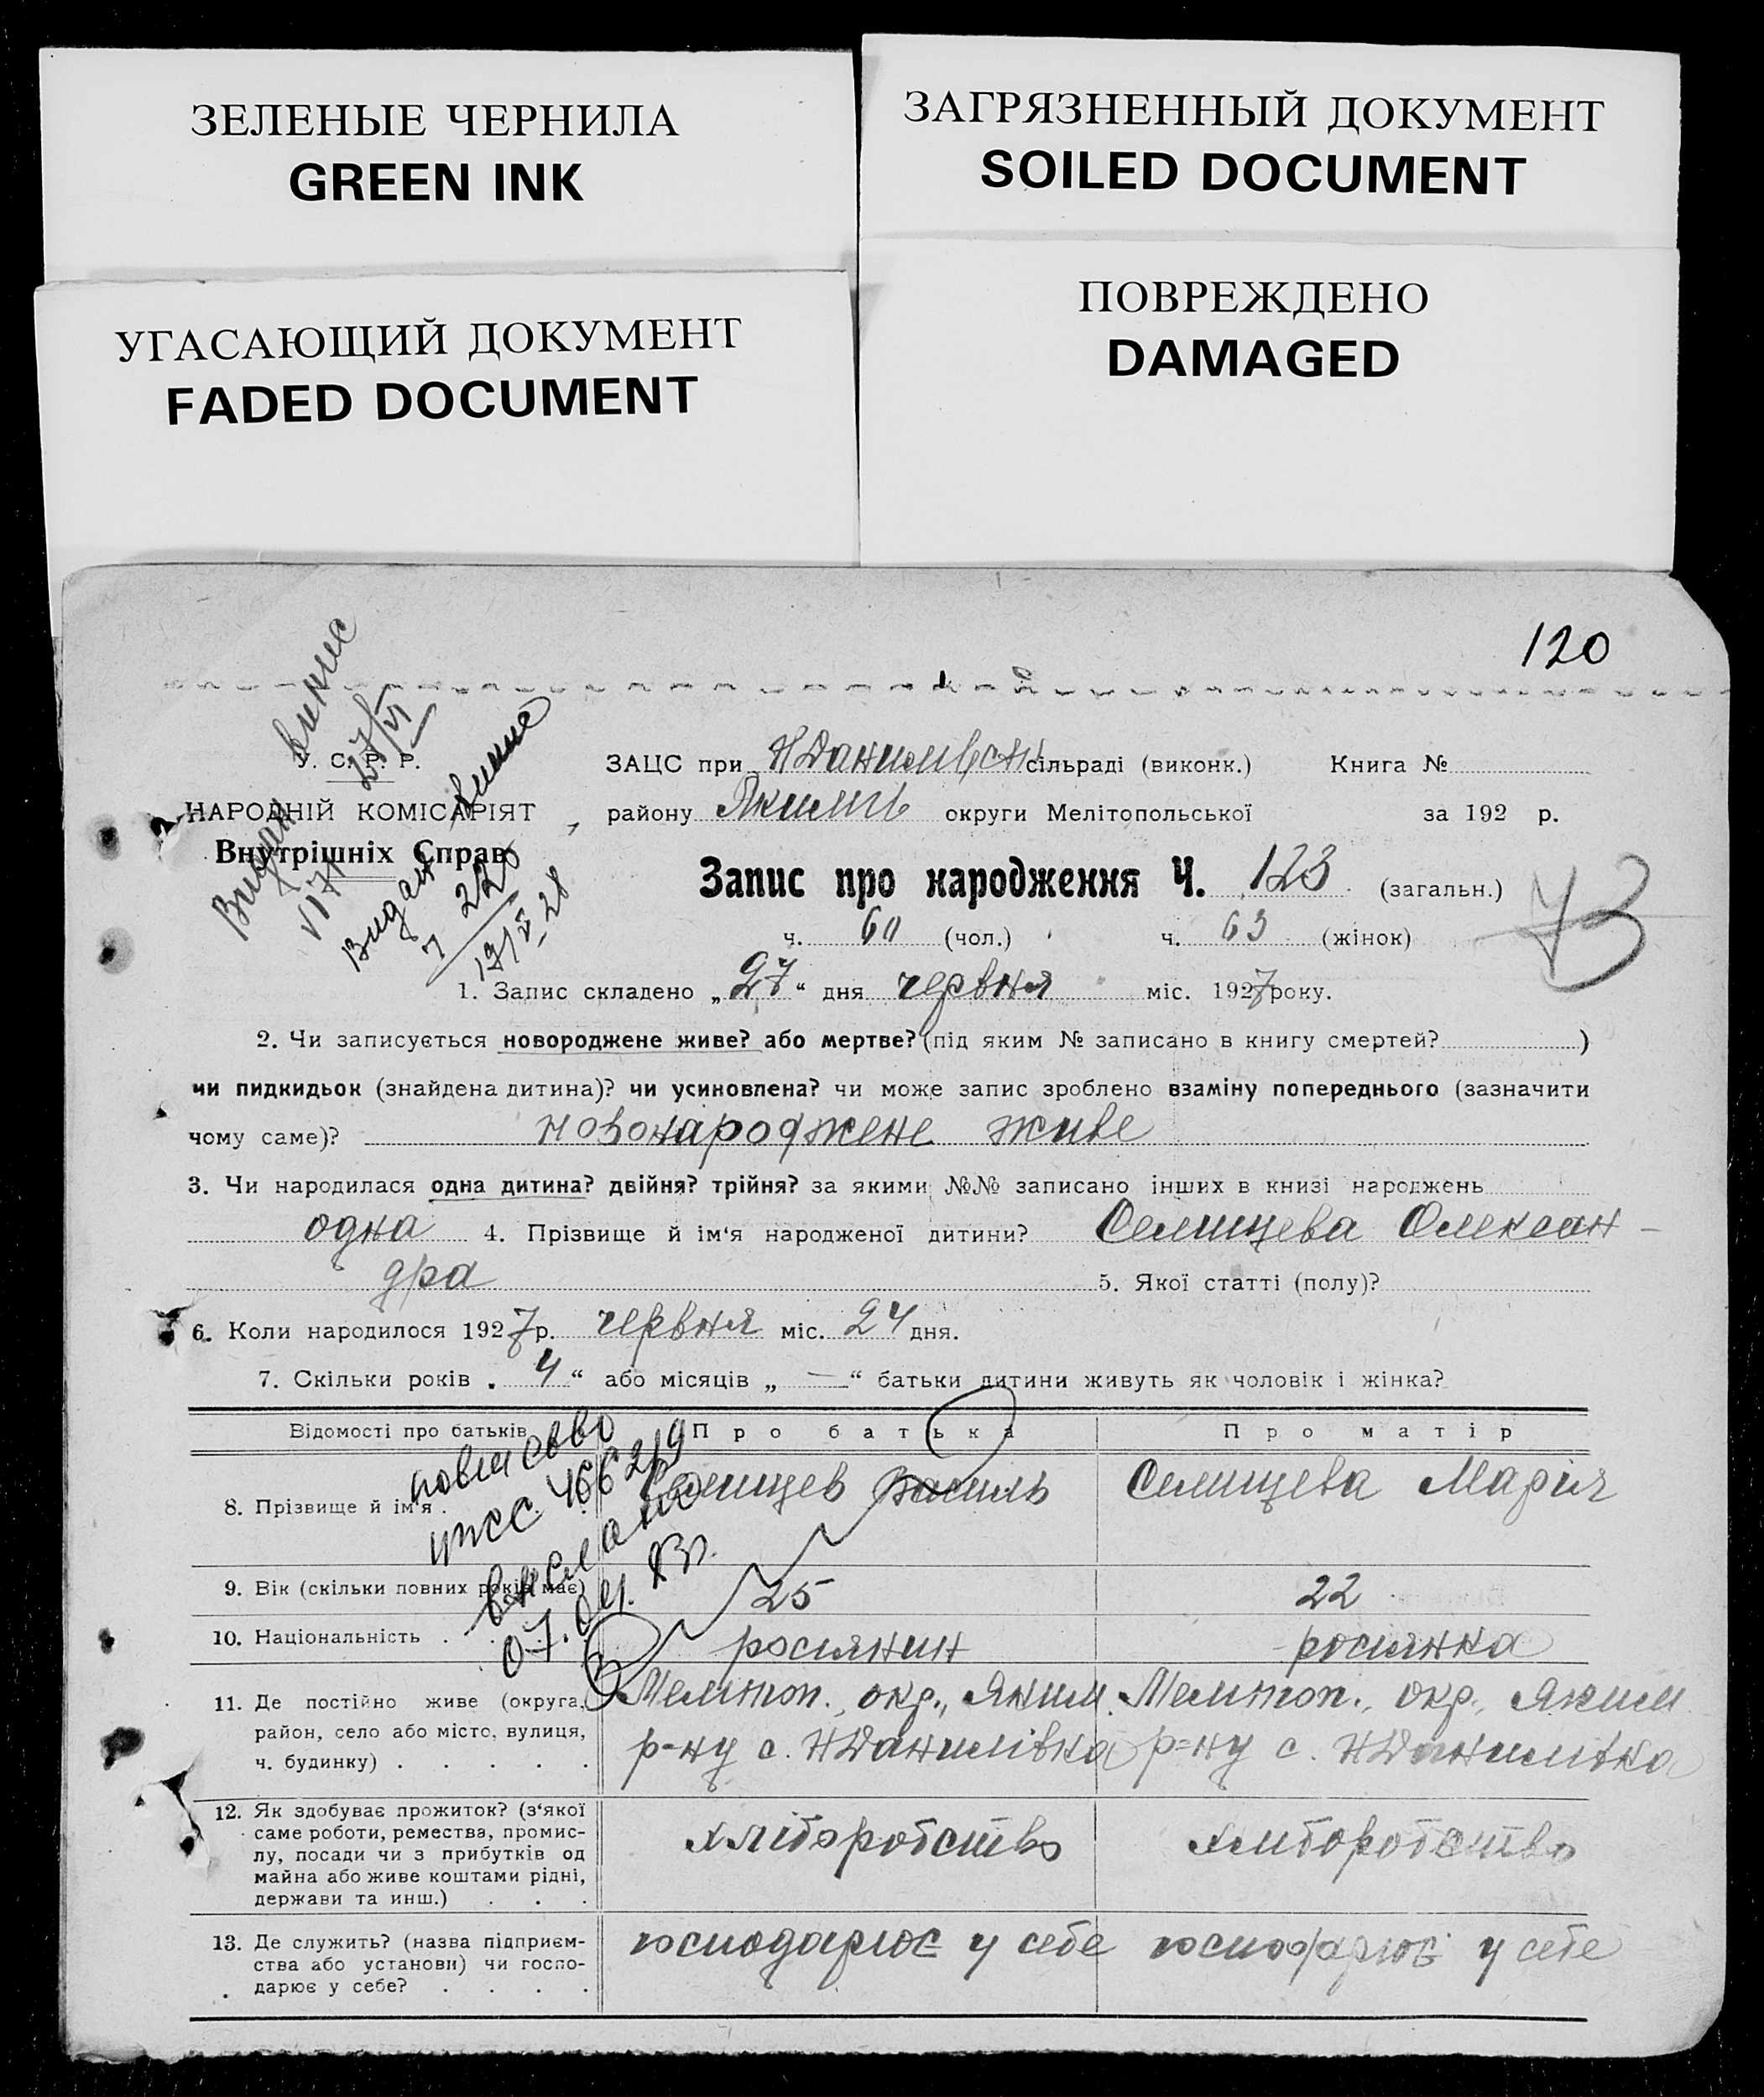 ЗЕЛЕНЫЕ ЧЕРНИЛА
GREEN INK
ЗАГРЯЗНЕННЫЙ ДОКУМЕНТ
SOILED DOCUMENT
УГАСАЮЩИЙ ДОКУМЕНТ
FADED DOCUMENT
ПОВРЕЖДЕНО
DAMAGED
120
Видан
27/VI
Видан
220
У. С. Р. Р.
НАРОДНІЙ КОМІСАРІЯТ
Внутрішніх Справ
ЗАЦС при НДанилівській сільраді (виконк.) Книга №
району Яким округи Мелітопольської за 192 р.
Запис про народження Ч. 123 (загальн.)
73
ч. 60 (чол.) ч. 63 (жінок)
1. Запис складено „27“ дня червня міс. 1927 року.
2. Чи записується новороджене живе? або мертве? (під яким № записано в книгу смертей? )
чи пидкидьок (знайдена дитина)? чи усиновлена? чи може запис зроблено взаміну попереднього (зазначити
чому саме)? новонароджене живе
3. Чи народилася одна дитина? двійня? трійня? за якими №№ записано інших в книзі народжень
одна 4. Прізвище й ім'я народженої дитини? Селищева Олексан-
дра 5. Якої статті (полу)?
6. Коли народилося 1927 р. червня міс. 24 дня.
7. Скільки років „4“ або місяців „—“ батьки дитини живуть як чоловік і жінка?
Відомості про батьків Про батька Про матір
8. Прізвище й ім'я . Селищев Василь Селищева Марія
9. Вік (скільки повних років має) 25 22
10. Національність . росиянин росиянка
11. Де постійно живе (округа, район, село або місто, вулиця, ч. будинку) . . . . .
Мелітоп. окр., Яким. р-ну с. НДанилівка
Мелітоп. окр. Яким р-ну с. НДанилівка
12. Як здобуває прожиток? (з'якої
саме роботи, ремества, промис-
лу, посади чи з прибутків од
майна або живе коштами рідні,
держави та инш.) . . .
хліборобство хліборобство
13. Де служить? (назва підприєм-
ства або установи) чи госпо-
дарює у себе? . . . .
господарює у себе господарює у себе